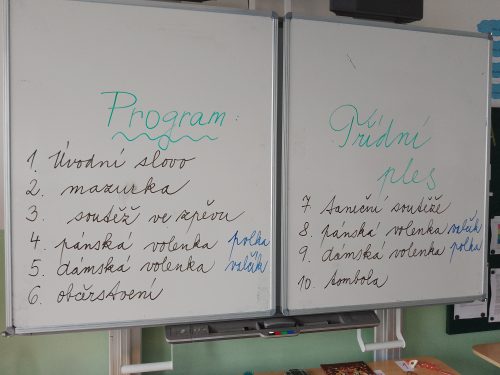 Program
1. Úvodní slovo
2. mazurka
3. soutěž ve zpěvu
4. pánská volenka polka
5. dámská volenka valčík
6. občerstvení
Třídní
ples
7. taneční soutěže
8. pánská volenka valčík
9. dámská volenka polka
10. tombola